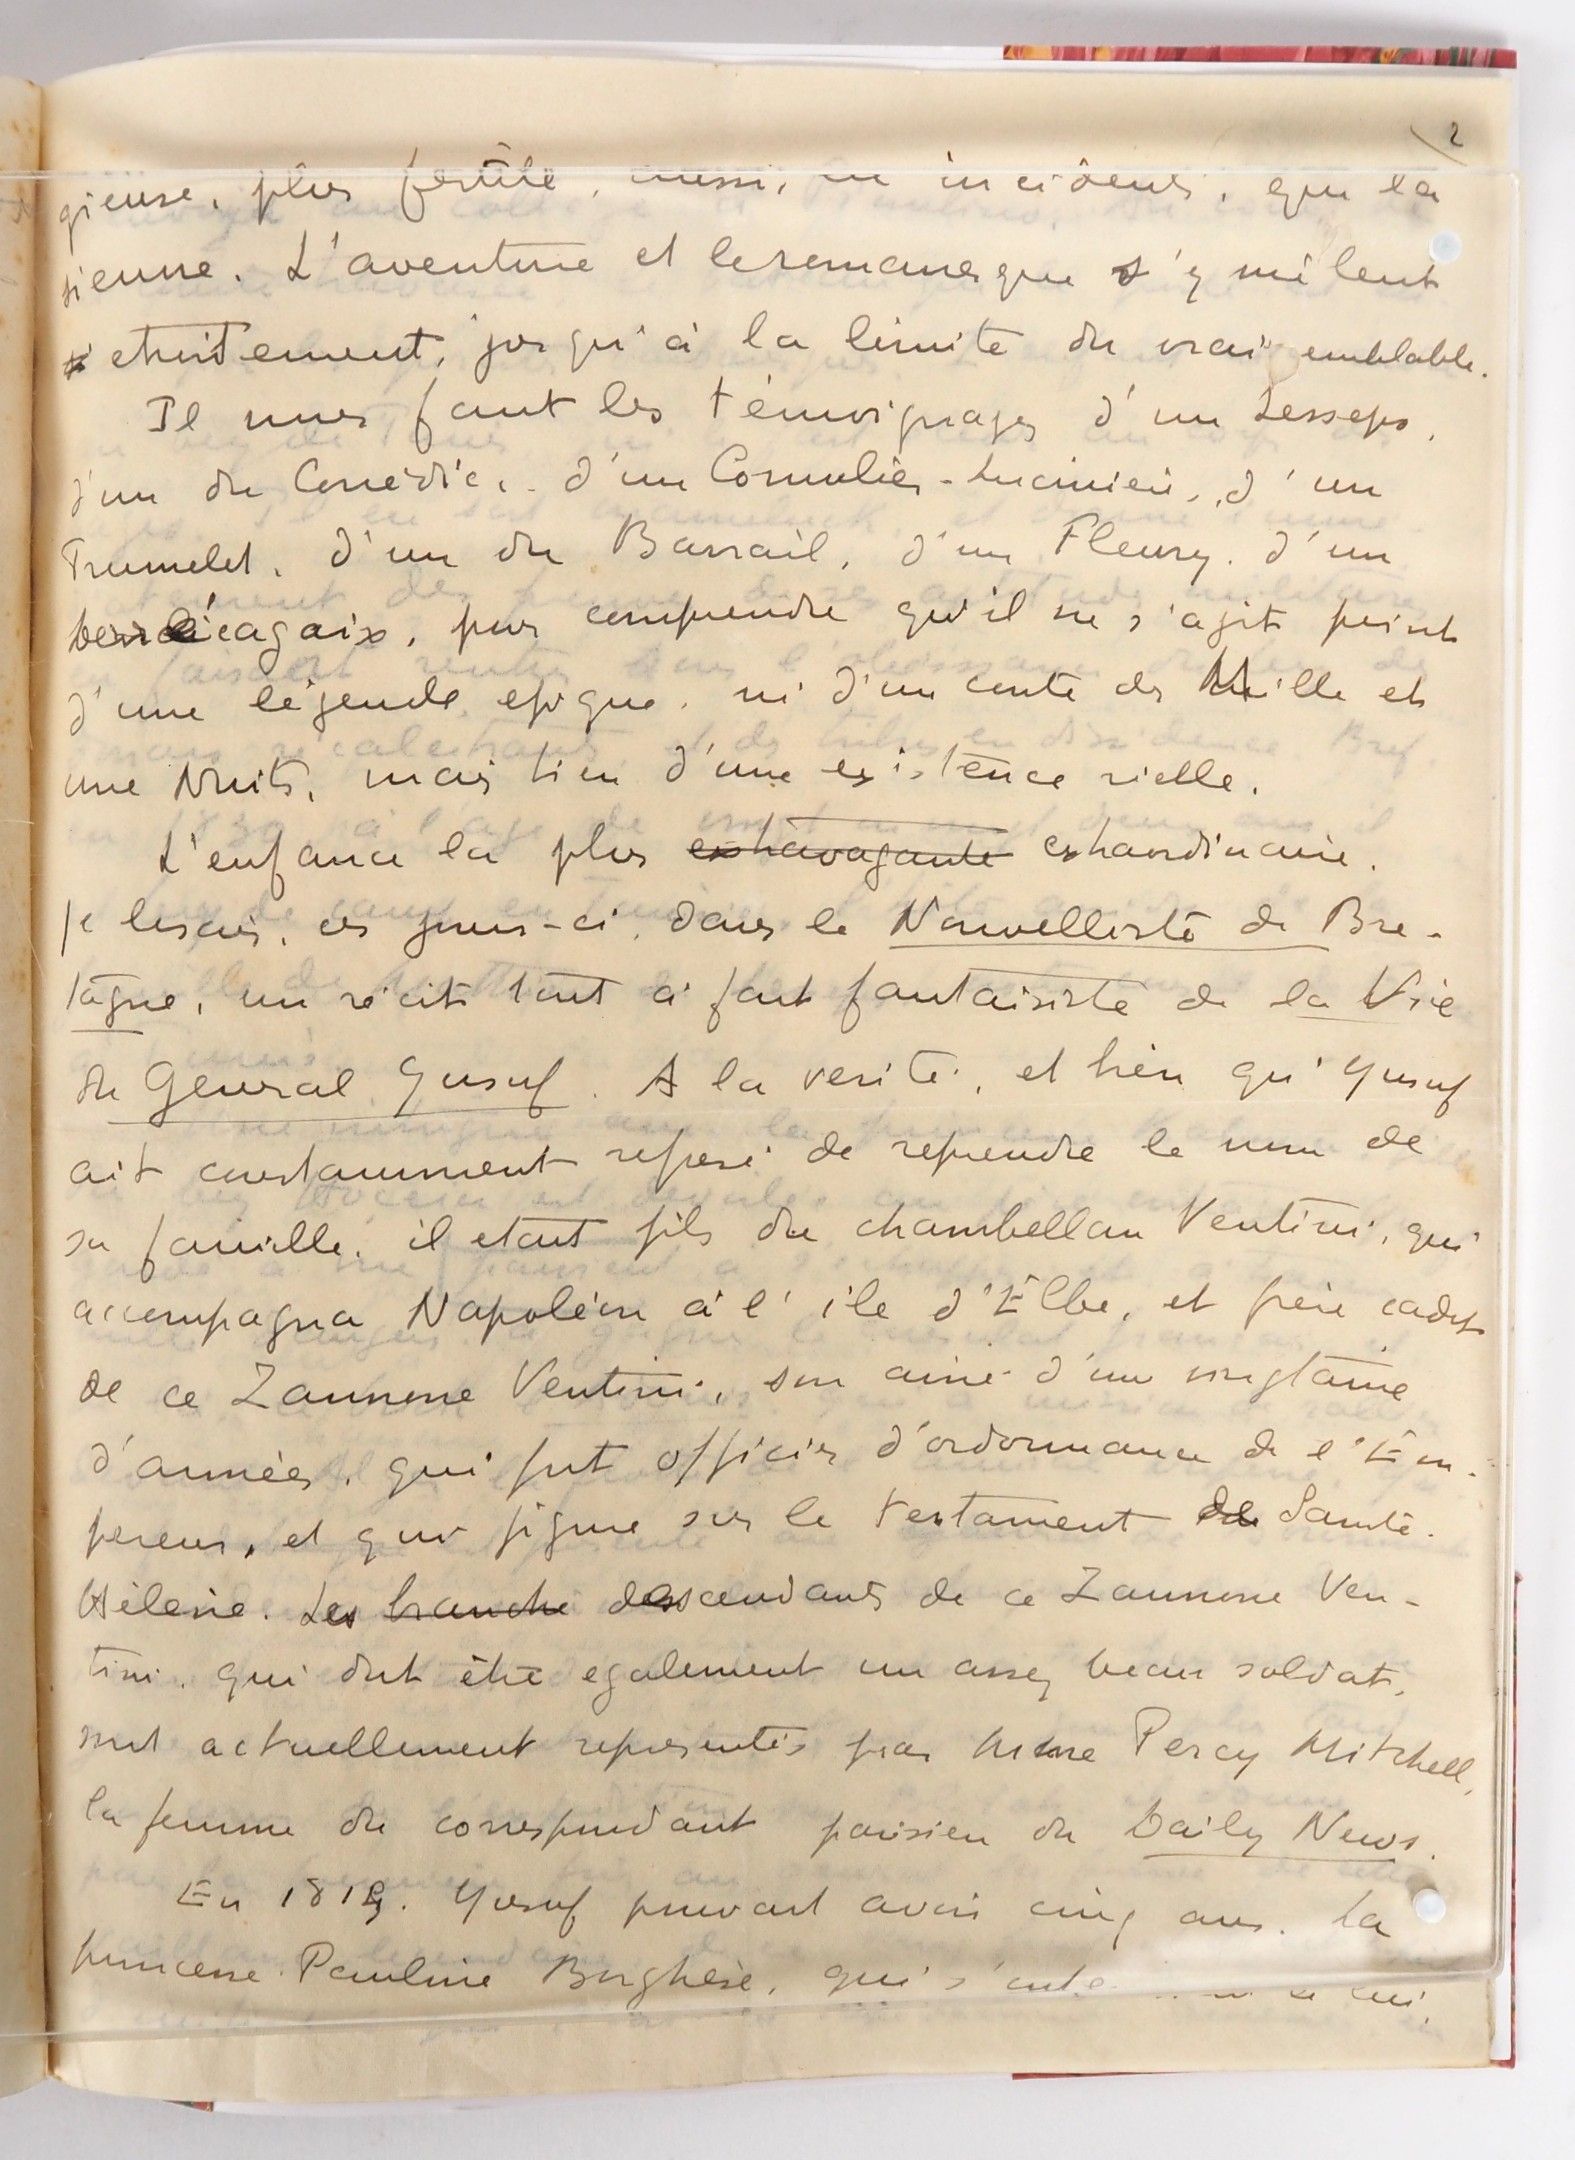 2
gieuse, plus fertile, aussi, en incidents, que la
sienne. L'aventure et le romanesque s'y mêlent
etroitement, jusqu'à la limite du vraisemblable.
Il nous faut les témoignages d'un Lesseps,
d'un du Couëdic, d'un Cornulier-Lucinière, d'un
Trumelet, d'un du Barrail, d'un Fleury, d'un
Derrécagaix, pour comprendre qu'il ne s'agit point
d'une légende epique, ni d'un conte des Mille et
une Nuits, mais bien d'une existence réelle.
L'enfance la plus extravagante extraordinaire.
Je lisais, ces jours-ci, dans le Nouvelliste de Bre-
tagne, un récit tout à fait fantaisiste de la Vie
du Général Yusuf. A la verité, et bien qu'Yusuf
ait constamment refusé de reprendre le nom de
sa famille, il etait fils du chambellan Ventini, qui
accompagna Napoléon à l'île d'Elbe, et frère cadet
de ce Zannone Ventini, son ainé d'une vingtaine
d'années, qui fut officier d'ordonnance de l'Em-
pereur, et qui figure sur le testament de Sainte-
Hélène. Les branche descendants de ce Zannone Ven-
tini, qui dut être egalement un assez beau soldat,
sont actuellement representés par Mme Percy Mitchell,
la femme du correspondant parisien du Daily News.
En 1815, Yusuf pouvait avoir cinq ans. La
princesse Pauline Borghèse, qui lui,